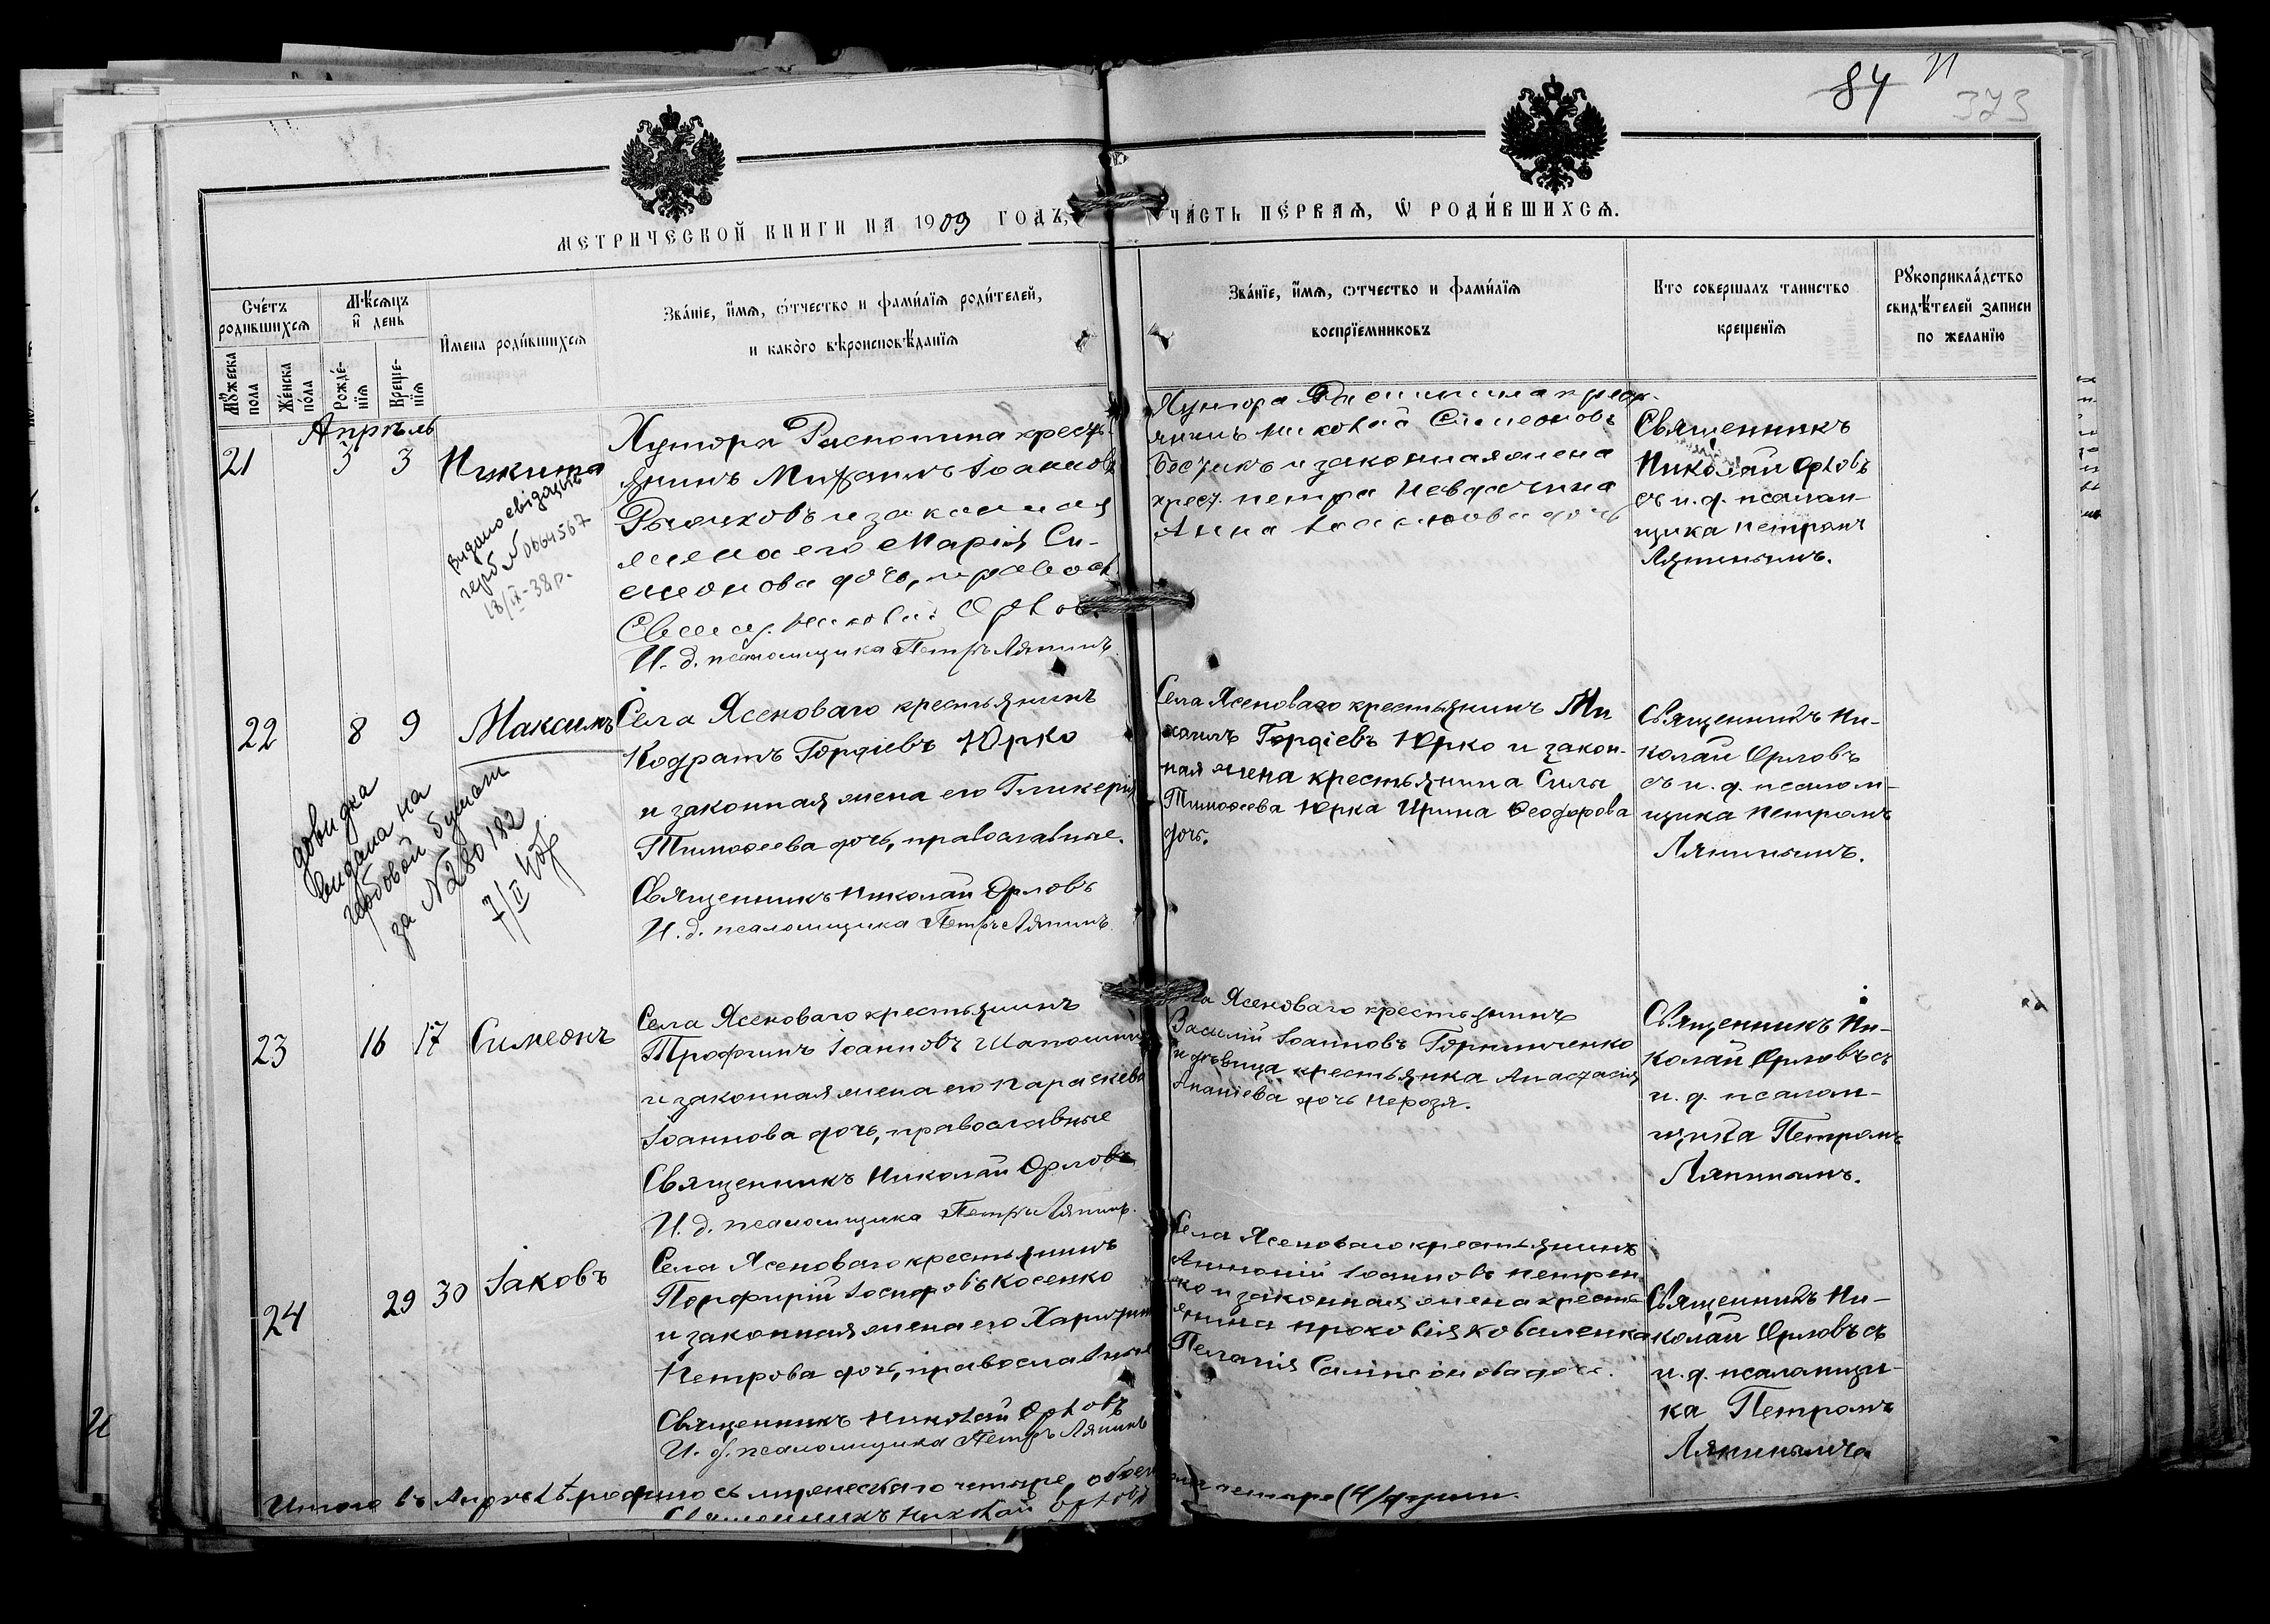 84
373
МЕТРИЧЕСКОЙ КНИГИ НА 1909 ГОДЪ,
ЧАСТЬ ПЕРВАЯ, Ѡ РОДИ́ВШИХСЯ.
Сче́тъ родившихся
Мꙋ́жеска пола
Же́нска по́ла
Мѣ́сяцъ и҆ день
Рожде́-нїя
Креще-нїя
И҆мена роди́вшихся
Зва́нїе, и҆́мя, ѻ҆́тчество и фами́лїя роди́телей,
и како́го вѣроисповѣ́данїя
Зва́нїе, и҆́мя, ѻтчество и фами́лїя
воспрїемниковъ
Кто соверша́лъ таинство
креще́нїя
Рꙋкоприкла́дство
свидѣ́телей записи
по жела́нїю
Апрѣль
21
3
3
Никита
Видано свідоцтв
герб № 0664567
18/IX-38 р.
Хутора Распопина крест-
янинъ Михаилъ Іоанновъ
Рычковъ и законная
жена его Марія Си-
меонова дочь, правосл.
Священ. Николай Орлов.
И. д. псаломщика Петръ Ляпинъ.
Хутора Распопина крест-
янинъ Николай Симеоновъ
и законная жена
крест. Петра
Анна дочь
Священникъ
Николай Орловъ
съ и. д. псалом-
щика Петромъ
Ляпинымъ.
22
8
9
Максимъ
довидка
видана на
гербовой бумаги
за № 280182
7/II 40 г
Села Ясеноваго крестьянинъ
Кодратъ Гордіевъ Юрко
и законная жена его Гликерія
Тимоѳеева дочь, православные.
Священникъ Николай Орловъ
И. д. псаломщика Петръ Ляпинъ
Села Ясеноваго крестьянинъ Ми
хаилъ Гордіевъ Юрко и закон-
ная жена крестьянина Силы
Тимоѳеева Юрка Ирина Ѳеодорова
дочь.
Священникъ Ни-
колай Орловъ
съ и. д. псалом-
щика Петромъ
Ляпинымъ.
23
16
17
Симеонъ
Села Ясеноваго крестьянинъ
Трофимъ Іоанновъ
и законная жена его Параскева
Іоаннова дочь, православные
Священникъ Николай Орловъ
И. д. псаломщика Петръ Ляпинъ.
Села Ясеноваго крестьянинъ
Василій Іоанновъ Горниченко
и дѣвица крестьянка Анастасія
Ананіева дочь Нерозя.
Священникъ Ни-
колай Орловъ съ
и. д. псалом-
щика Петромъ
Ляпинымъ.
24
29
30
Іаковъ
Села Ясеноваго крестьянинъ
Порфирій Іосифовъ Косенко
и законная жена его Харитина
Петрова дочь, православные
Священникъ Николай Орловъ
И. д. псаломщика Петръ Ляпинъ
Села Ясеноваго крестьянинъ
Антоній Іоанновъ Петрен-
ко и законная жена кресть-
янина Прокопія Коваленка
Пелагія Симеонова дочь.
Священникъ Ни-
колай Орловъ съ
и. д. псаломщи-
ка Петромъ
Ляпинымъ
Итого въ Апрѣлѣ родилось мужескаго четыре, обоего пола четыре (4) души.
Священникъ Николай Орловъ